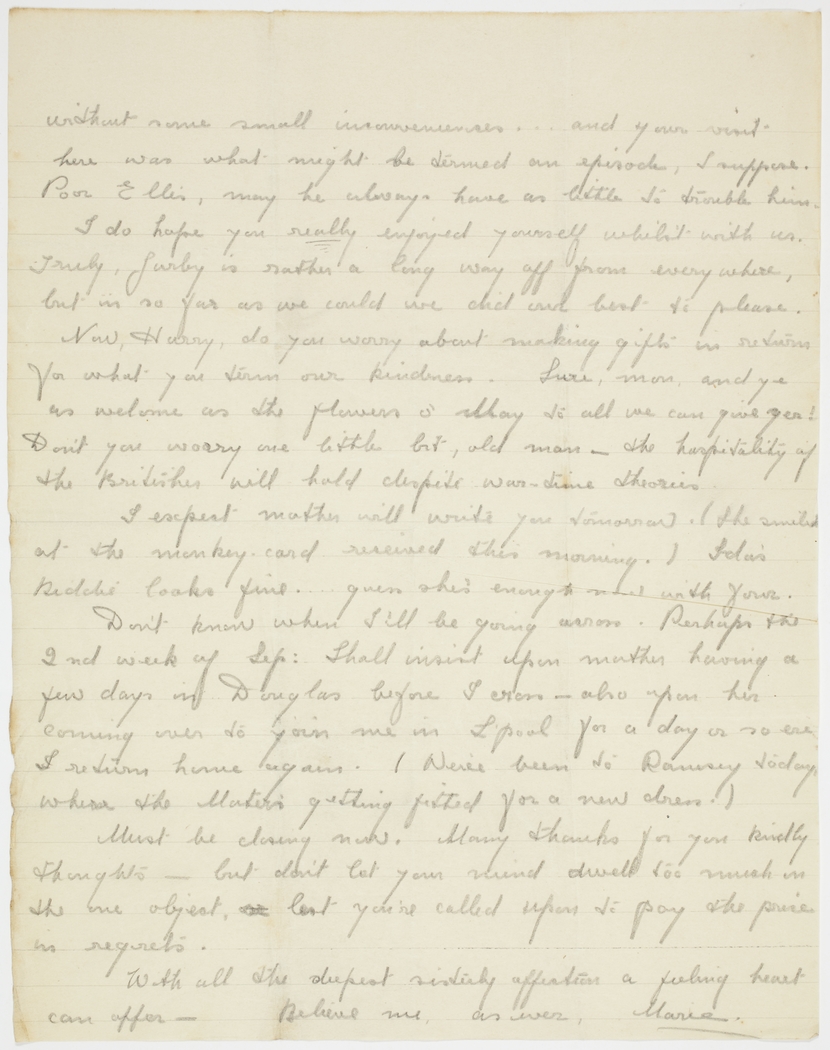 without some small inconveniences... and your visit
here was what might be termed an episode, I suppose.
Poor Ellis, may he always have as little to trouble him.
I do hope you really enjoyed yourself whilst with us.
Truly, Jurby is rather a long way off from everywhere,
but in so far as we could we did our best to please.
Now, Harry, do you worry about making gifts in return
for what you term our kindness. Sure, mon, and ye
as welcome as the flowers o' May to all we can give yer!
Don't you worry one little bit, old man — the hospitality of
the Britisher will hold despite war-time theories.
I expect mother will write you tomorrow. (She smiled
at the monkey-card received this morning.) Ida's
Kiddie looks fine... guess she's enough now with four.
Don't know when I'll be going across. Perhaps the
2nd week of Sep: Shall insist upon mother having a
few days in Douglas before I cross — also upon her
coming over to join me in L'pool for a day or so ere
I return home again. (We've been to Ramsey today,
where the Mater's getting fitted for a new dress.)
Must be closing now. Many thanks for you kindly
thoughts — but don't let your mind dwell too much on
the one object, lest you're called upon to pay the price
in regrets.
With all the deepest sisterly affection a feeling heart
can offer — Believe me, as ever, Marie.